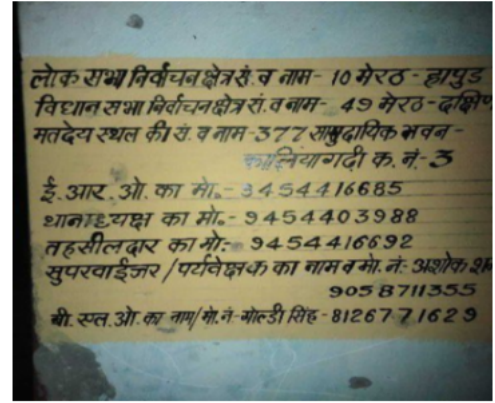 लोक सभा निर्वाचन क्षेत्र सं. व नाम - 10 मेरठ - हापुड
विधान सभा निर्वाचन क्षेत्र सं. व नाम - 49 मेरठ - दक्षिण
मतदेय स्थल की सं. व नाम - 377 सामुदायिक भवन -
कालियागढी क. नं. - 3
ई. आर. ओ. का मो. - 9454416685
थानाध्यक्ष का मो. - 9454403988
तहसीलदार का मो. - 9454416692
सुपरवाईजर / पर्यवेक्षक का नाम व मो. नं. अशोक
9058711355
बी. एल. ओ. का नाम/मो. नं. - गोल्डी सिंह - 8126771629